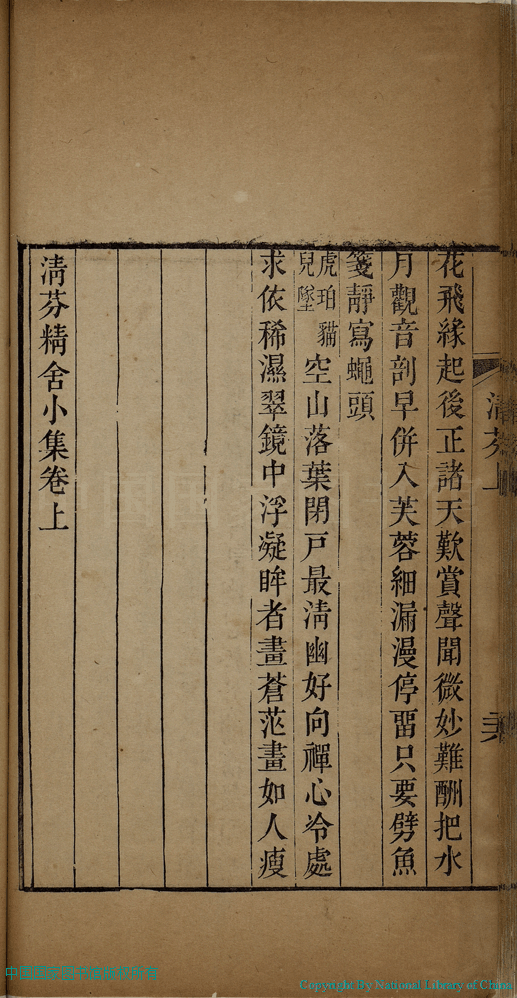 花飛緣起後正諸天歎賞聲聞微妙難酬把水
月觀音剖早併入芙蓉細漏漫停畱只要劈魚
箋靜寫蠅頭
虎珀貓
兒墜
空山落葉閉戸最淸幽好向禪心冷處
求依稀濕翠鏡中浮凝眸者畫蒼茫畫如人瘦
淸芬精舍小集卷上
清芬上
Copyright By National Library of China